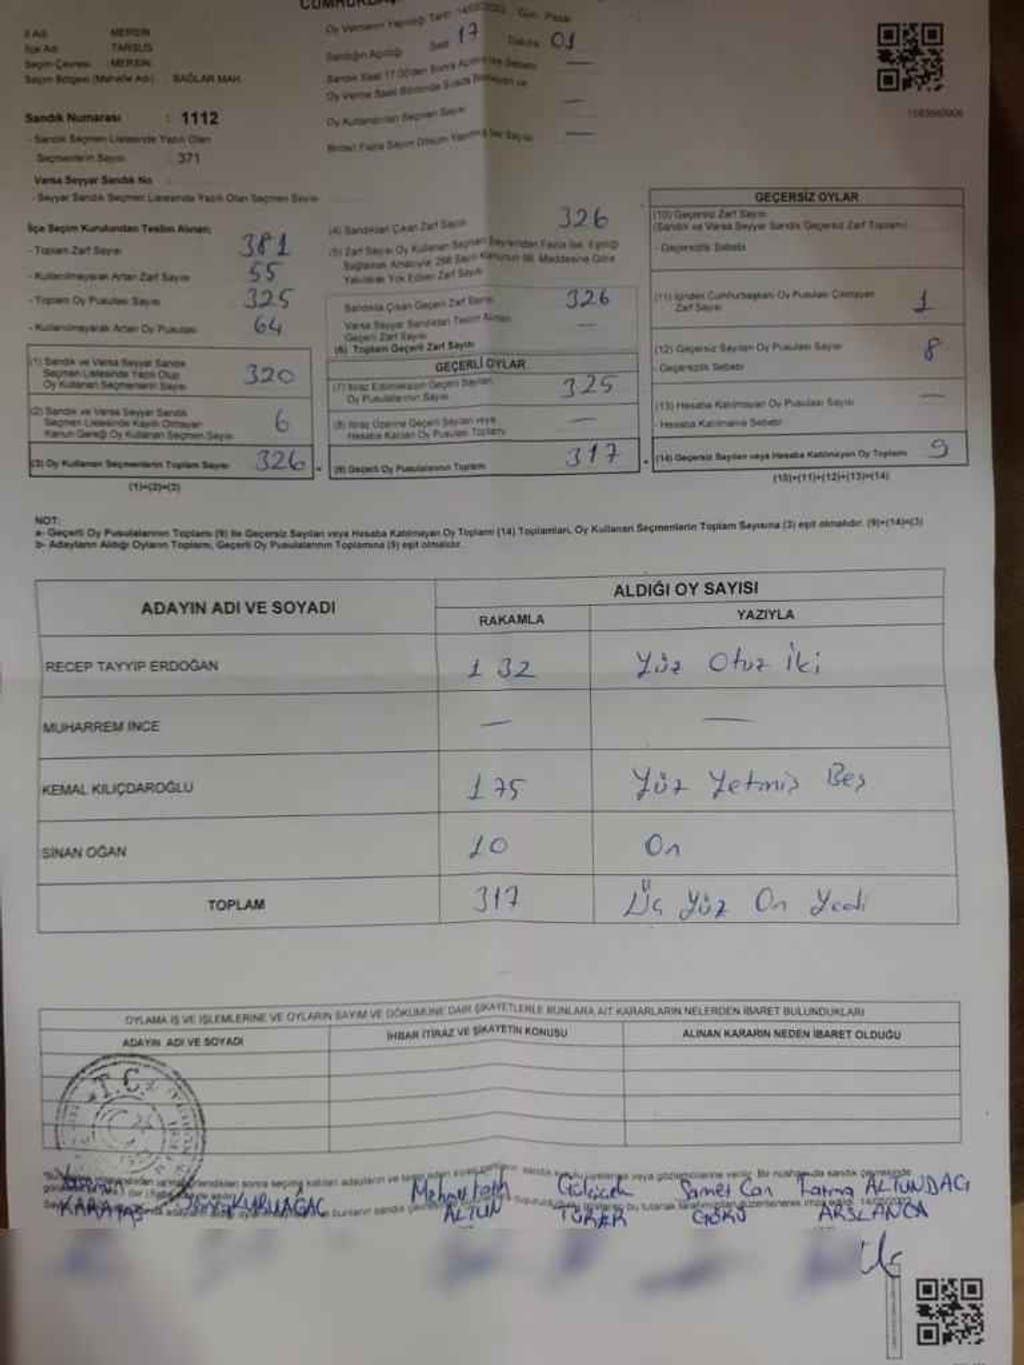 İl Adı : MERSİN
İlçe Adı : TARSUS
Seçim Çevresi : MERSİN
Seçim Bölgesi (Mahalle Adı) : BAĞLAR MAH.
Sandık Numarası : 1112
- Sandık Seçmen Listesinde Yazılı Olan
Seçmenlerin Sayısı : 371
Varsa Seyyar Sandık No
- Seyyar Sandık Seçmen Listesinde Yazılı Olan Seçmen Sayısı
Oy Vermenin Yapıldığı Tarih: 14/05/2023 Gün: Pazar
Sandığın Açıldığı Saat: 17 Dakika: 01
Oy Kullandırılan Seçmen Sayısı —
Birden Fazla Sayım Döküm Yapılmış İse Sayısı —
İlçe Seçim Kurulundan Teslim Alınan;
- Toplam Zarf Sayısı 381
- Kullanılmayarak Artan Zarf Sayısı 55
- Toplam Oy Pusulası Sayısı 325
- Kullanılmayarak Artan Oy Pusulası 64
(1) Sandık ve Varsa Seyyar Sandık
Seçmen Listesinde Yazılı Olup
Oy Kullanan Seçmenlerin Sayısı 320
(2) Sandık ve Varsa Seyyar Sandık
Seçmen Listesinde Kayıtlı Olmayan
Kanun Gereği Oy Kullanan Seçmen Sayısı 6
(3) Oy Kullanan Seçmenlerin Toplam Sayısı 326
(1)+(2)=(3)
(4) Sandıktan Çıkan Zarf Sayısı 326
(5) Zarf Sayısı Oy Kullanan Seçmen Sayısından Fazla İse, Eşitliği
Sağlamak Amacıyla 298 Sayılı Kanunun 98. Maddesine Göre
Yakılarak Yok Edilen Zarf Sayısı
Sandıkta Çıkan Geçerli Zarf Sayısı 326
Varsa Seyyar Sandıktan Teslim Alınan
Geçerli Zarf Sayısı —
(6) Toplam Geçerli Zarf Sayısı
GEÇERLİ OYLAR
(7) İtiraz Edilmeksizin Geçerli Sayılan
Oy Pusulalarının Sayısı 325
(8) İtiraz Üzerine Geçerli Sayılan veya
Hesaba Katılan Oy Pusulası Toplamı —
(9) Geçerli Oy Pusulalarının Toplamı 317
GEÇERSİZ OYLAR
(10) Geçersiz Zarf Sayısı
(Sandık ve Varsa Seyyar Sandık Geçersiz Zarf Toplamı)
- Geçersizlik Sebebi
(11) İçinden Cumhurbaşkanı Oy Pusulası Çıkmayan
Zarf Sayısı 1
(12) Geçersiz Sayılan Oy Pusulası Sayısı 8
- Geçersizlik Sebebi
(13) Hesaba Katılmayan Oy Pusulası Sayısı —
- Hesaba Katılmama Sebebi
(14) Geçersiz Sayılan veya Hesaba Katılmayan Oy Toplamı 9
(10)+(11)+(12)+(13)=(14)
NOT:
a- Geçerli Oy Pusulalarının Toplamı (9) ile Geçersiz Sayılan veya Hesaba Katılmayan Oy Toplamı (14) Toplamları, Oy Kullanan Seçmenlerin Toplam Sayısına (3) eşit olmalıdır. (9)+(14)=(3)
b- Adayların Aldığı Oyların Toplamı, Geçerli Oy Pusulalarının Toplamına (9) eşit olmalıdır.
ADAYIN ADI VE SOYADI ALDIĞI OY SAYISI
RAKAMLA YAZIYLA
RECEP TAYYİP ERDOĞAN 132 Yüz Otuz İki
MUHARREM İNCE — —
KEMAL KILIÇDAROĞLU 175 Yüz Yetmiş Beş
SİNAN OĞAN 10 On
TOPLAM 317 Üç Yüz On Yedi
OYLAMA İŞ VE İŞLEMLERİNE VE OYLARIN SAYIM VE DÖKÜMÜNE DAİR ŞİKAYETLERLE BUNLARA AİT KARARLARIN NELERDEN İBARET BULUNDUKLARI
ADAYIN ADI VE SOYADI İHBAR İTİRAZ VE ŞİKAYETİN KONUSU ALINAN KARARIN NEDEN İBARET OLDUĞU
T.C.
KARATAŞ KURUAĞAÇ Mehmet Fatih ALTUN Gülçiçek TÜRER Samet Can GÖKÜ Fatma ALTUNDAĞ ARSLANCA